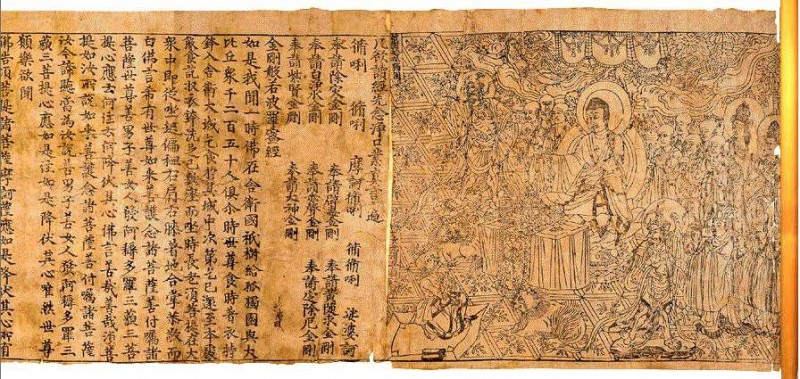 凡欲讀經先念淨口業真言一遍
脩唎 脩唎 摩訶脩唎 脩脩唎 娑婆訶
奉請除灾金剛 奉請辟毒金剛 奉請黃隨求金剛
奉請白淨水金剛 奉請赤聲金剛 奉請定除厄金剛
奉請紫賢金剛 奉請大神金剛
金剛般若波羅蜜經
如是我聞一時佛在舍衛國祇樹給孤獨園與大
比丘衆千二百五十人俱尒時世尊食時著衣持
鉢入舍衛大城乞食於其城中次第乞已還至本處
飯食訖收衣鉢洗足已敷座而坐時長老須菩提在大
衆中即從座起偏袒右肩右膝著地合掌恭敬而
白佛言希有世尊如来善護念諸菩薩善付囑諸
菩薩世尊善男子善女人發阿耨多羅三藐三菩
提心應云何住云何降伏其心佛言善哉善哉須菩
提如汝所說如来善護念諸菩薩善付囑諸菩薩
汝今諦聽當為汝說善男子善女人發阿耨多羅三
藐三菩提心應如是住如是降伏其心唯然世尊
願樂欲聞
佛告須菩提諸菩薩摩訶薩應如是降伏其心所有